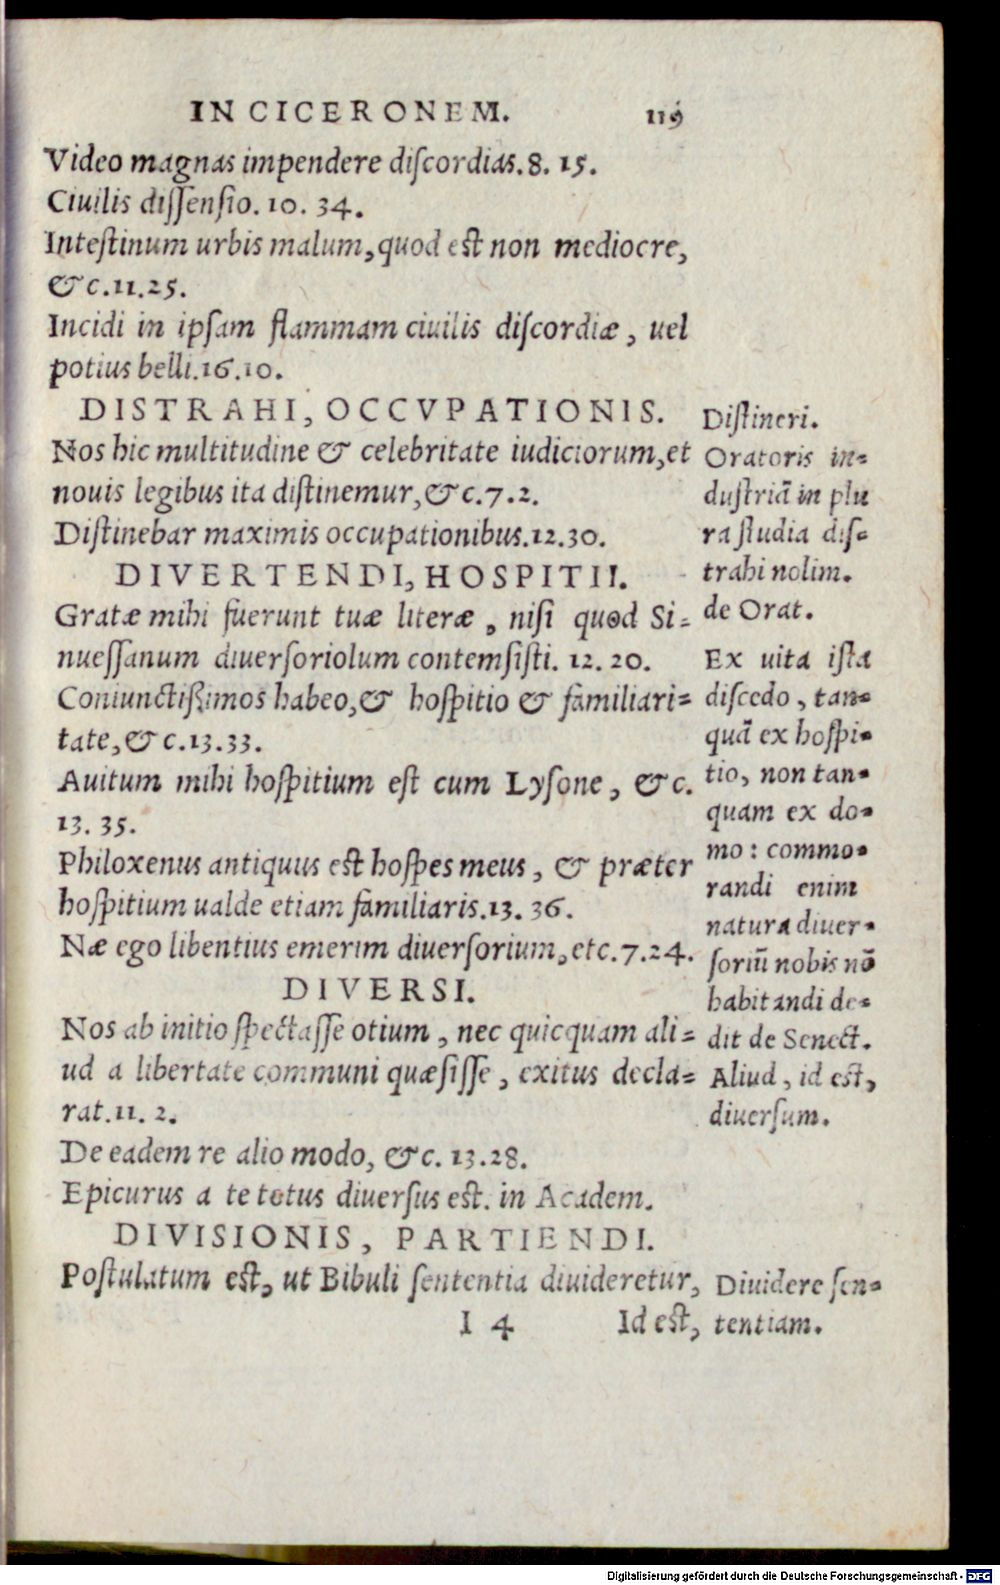 IN CICERONEM. 119
Video magnas impendere discordias. 8. 15.
Ciuilis dissensio. 10. 34.
Intestinum urbis malum, quod est non mediocre,
&c. 11. 25.
Incidi in ipsam flammam ciuilis discordiæ, uel
potius belli. 16. 10.
DISTRAHI, OCCVPATIONIS.
Nos hic multitudine & celebritate iudiciorum, et
nouis legibus ita distinemur, &c. 7. 2.
Distinebar maximis occupationibus. 12. 30.
DIVERTENDI, HOSPITII.
Gratæ mihi fuerunt tuæ literæ, nisi quod Si-
nuessanum diuersoriolum contemsisti. 12. 20.
Coniunctißimos habeo, & hospitio & familiari-
tate, &c. 13. 33.
Auitum mihi hospitium est cum Lysone, &c.
13. 35.
Philoxenus antiquus est hospes meus, & præter
hospitium ualde etiam familiaris. 13. 36.
Næ ego libentius emerim diuersorium, etc. 7. 24.
DIVERSI.
Nos ab initio spectasse otium, nec quicquam ali-
ud a libertate communi quæsisse, exitus decla-
rat. 11. 2.
De eadem re alio modo, &c. 13. 28.
Epicurus a te totus diuersus est. in Academ.
DIVISIONIS, PARTIENDI.
Postulatum est, ut Bibuli sententia diuideretur,
I 4 Id est,
Distineri.
Oratoris in-
dustriã in plu
ra studia dis-
trahi nolim.
de Orat.
Ex uita ista
discedo, tan-
quã ex hospi-
tio, non tan-
quam ex do-
mo: commo-
randi enim
natura diuer-
soriũ nobis nõ
habitandi de-
dit de Senect.
Aliud, id est,
diuersum.
Diuidere sen-
tentiam.
Digitalisierung gefördert durch die Deutsche Forschungsgemeinschaft - DFG